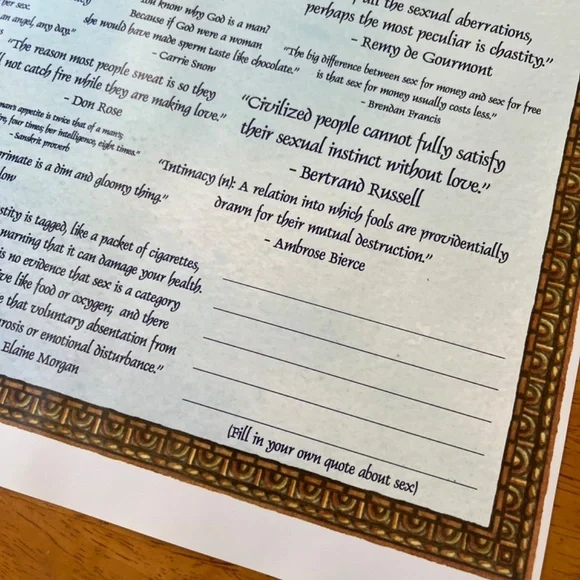 her sex.
an angel, any day."
know why God is a man?
Because if God were a woman
she would have made sperm taste like chocolate."
- Carrie Snow
"The reason most people sweat is so they
not catch fire while they are making love."
- Don Rose
appetite is twice that of a man's;
four times; her intelligence, eight times."
- Sanskrit proverb
is a dim and gloomy thing."
the sexual aberrations,
perhaps the most peculiar is chastity."
- Remy de Gourmont
"The big difference between sex for money and sex for free
is that sex for money usually costs less."
- Brendan Francis
"Civilized people cannot fully satisfy
their sexual instinct without love."
- Bertrand Russell
"Intimacy (n): A relation into which fools are providentially
drawn for their mutual destruction."
- Ambrose Bierce
is tagged, like a packet of cigarettes,
warning that it can damage your health.
is no evidence that sex is a category
like food or oxygen; and there
that voluntary absentation from
or emotional disturbance."
Elaine Morgan
(Fill in your own quote about sex)